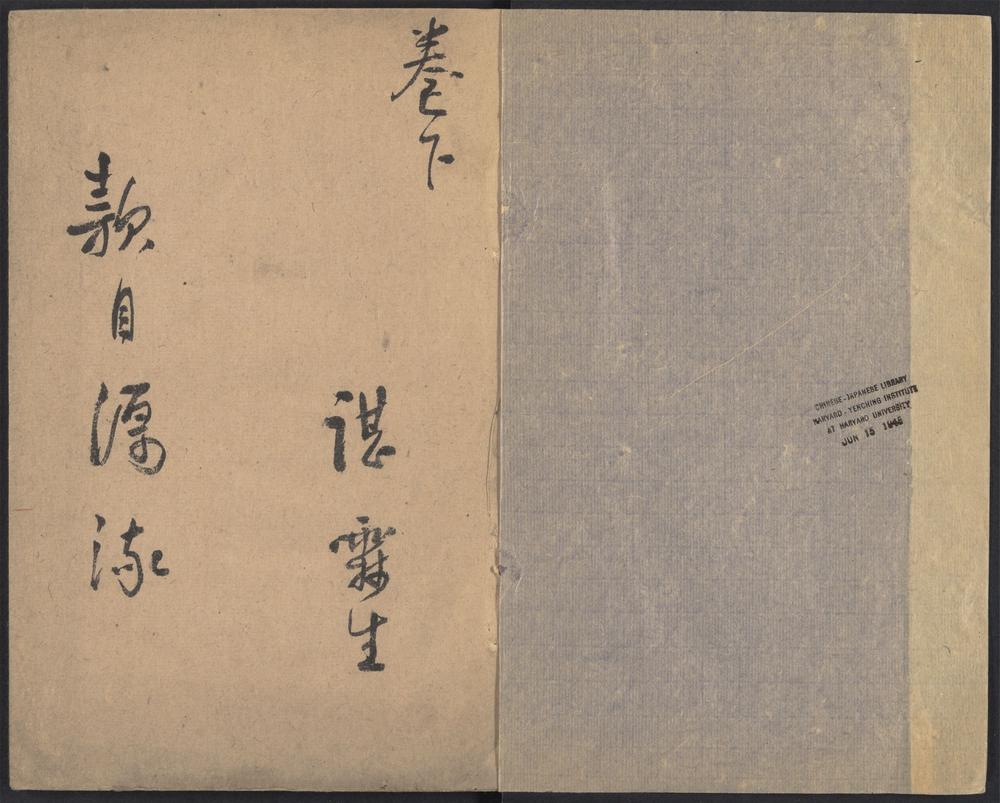 卷下
諶霖生
款目源流
CHINESE-JAPANESE LIBRARY
HARVARD-YENCHING INSTITUTE
AT HARVARD UNIVERSITY
JUN 15 1948